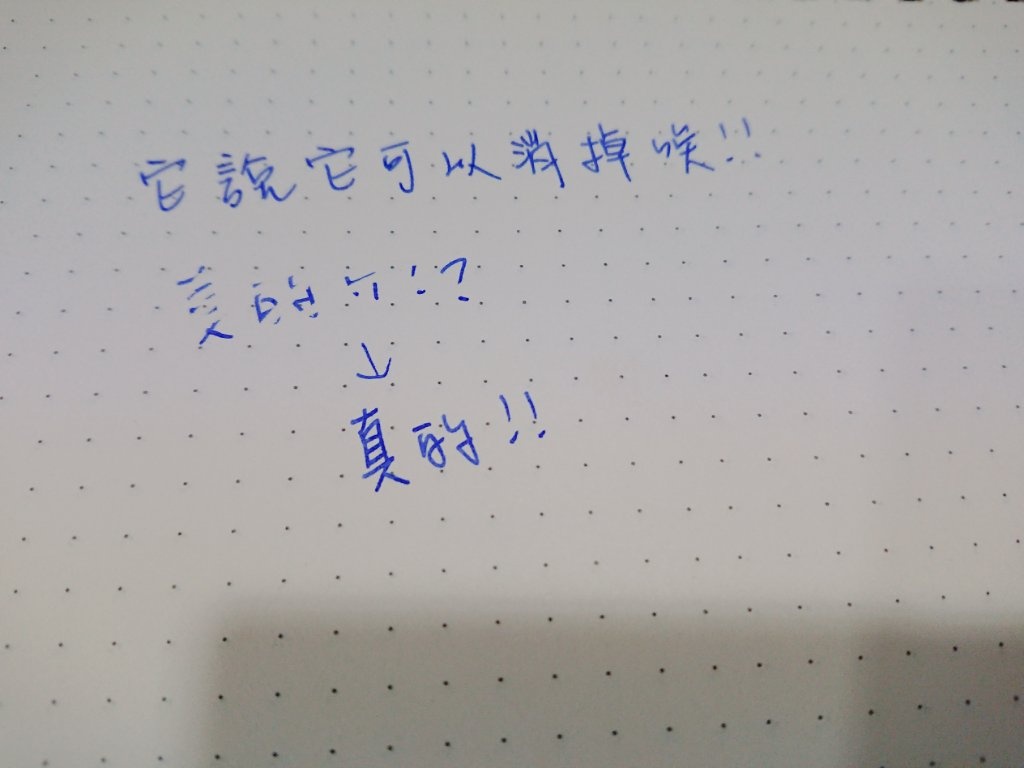 它說它可以消掉唉!!
的!?
↓
真的!!